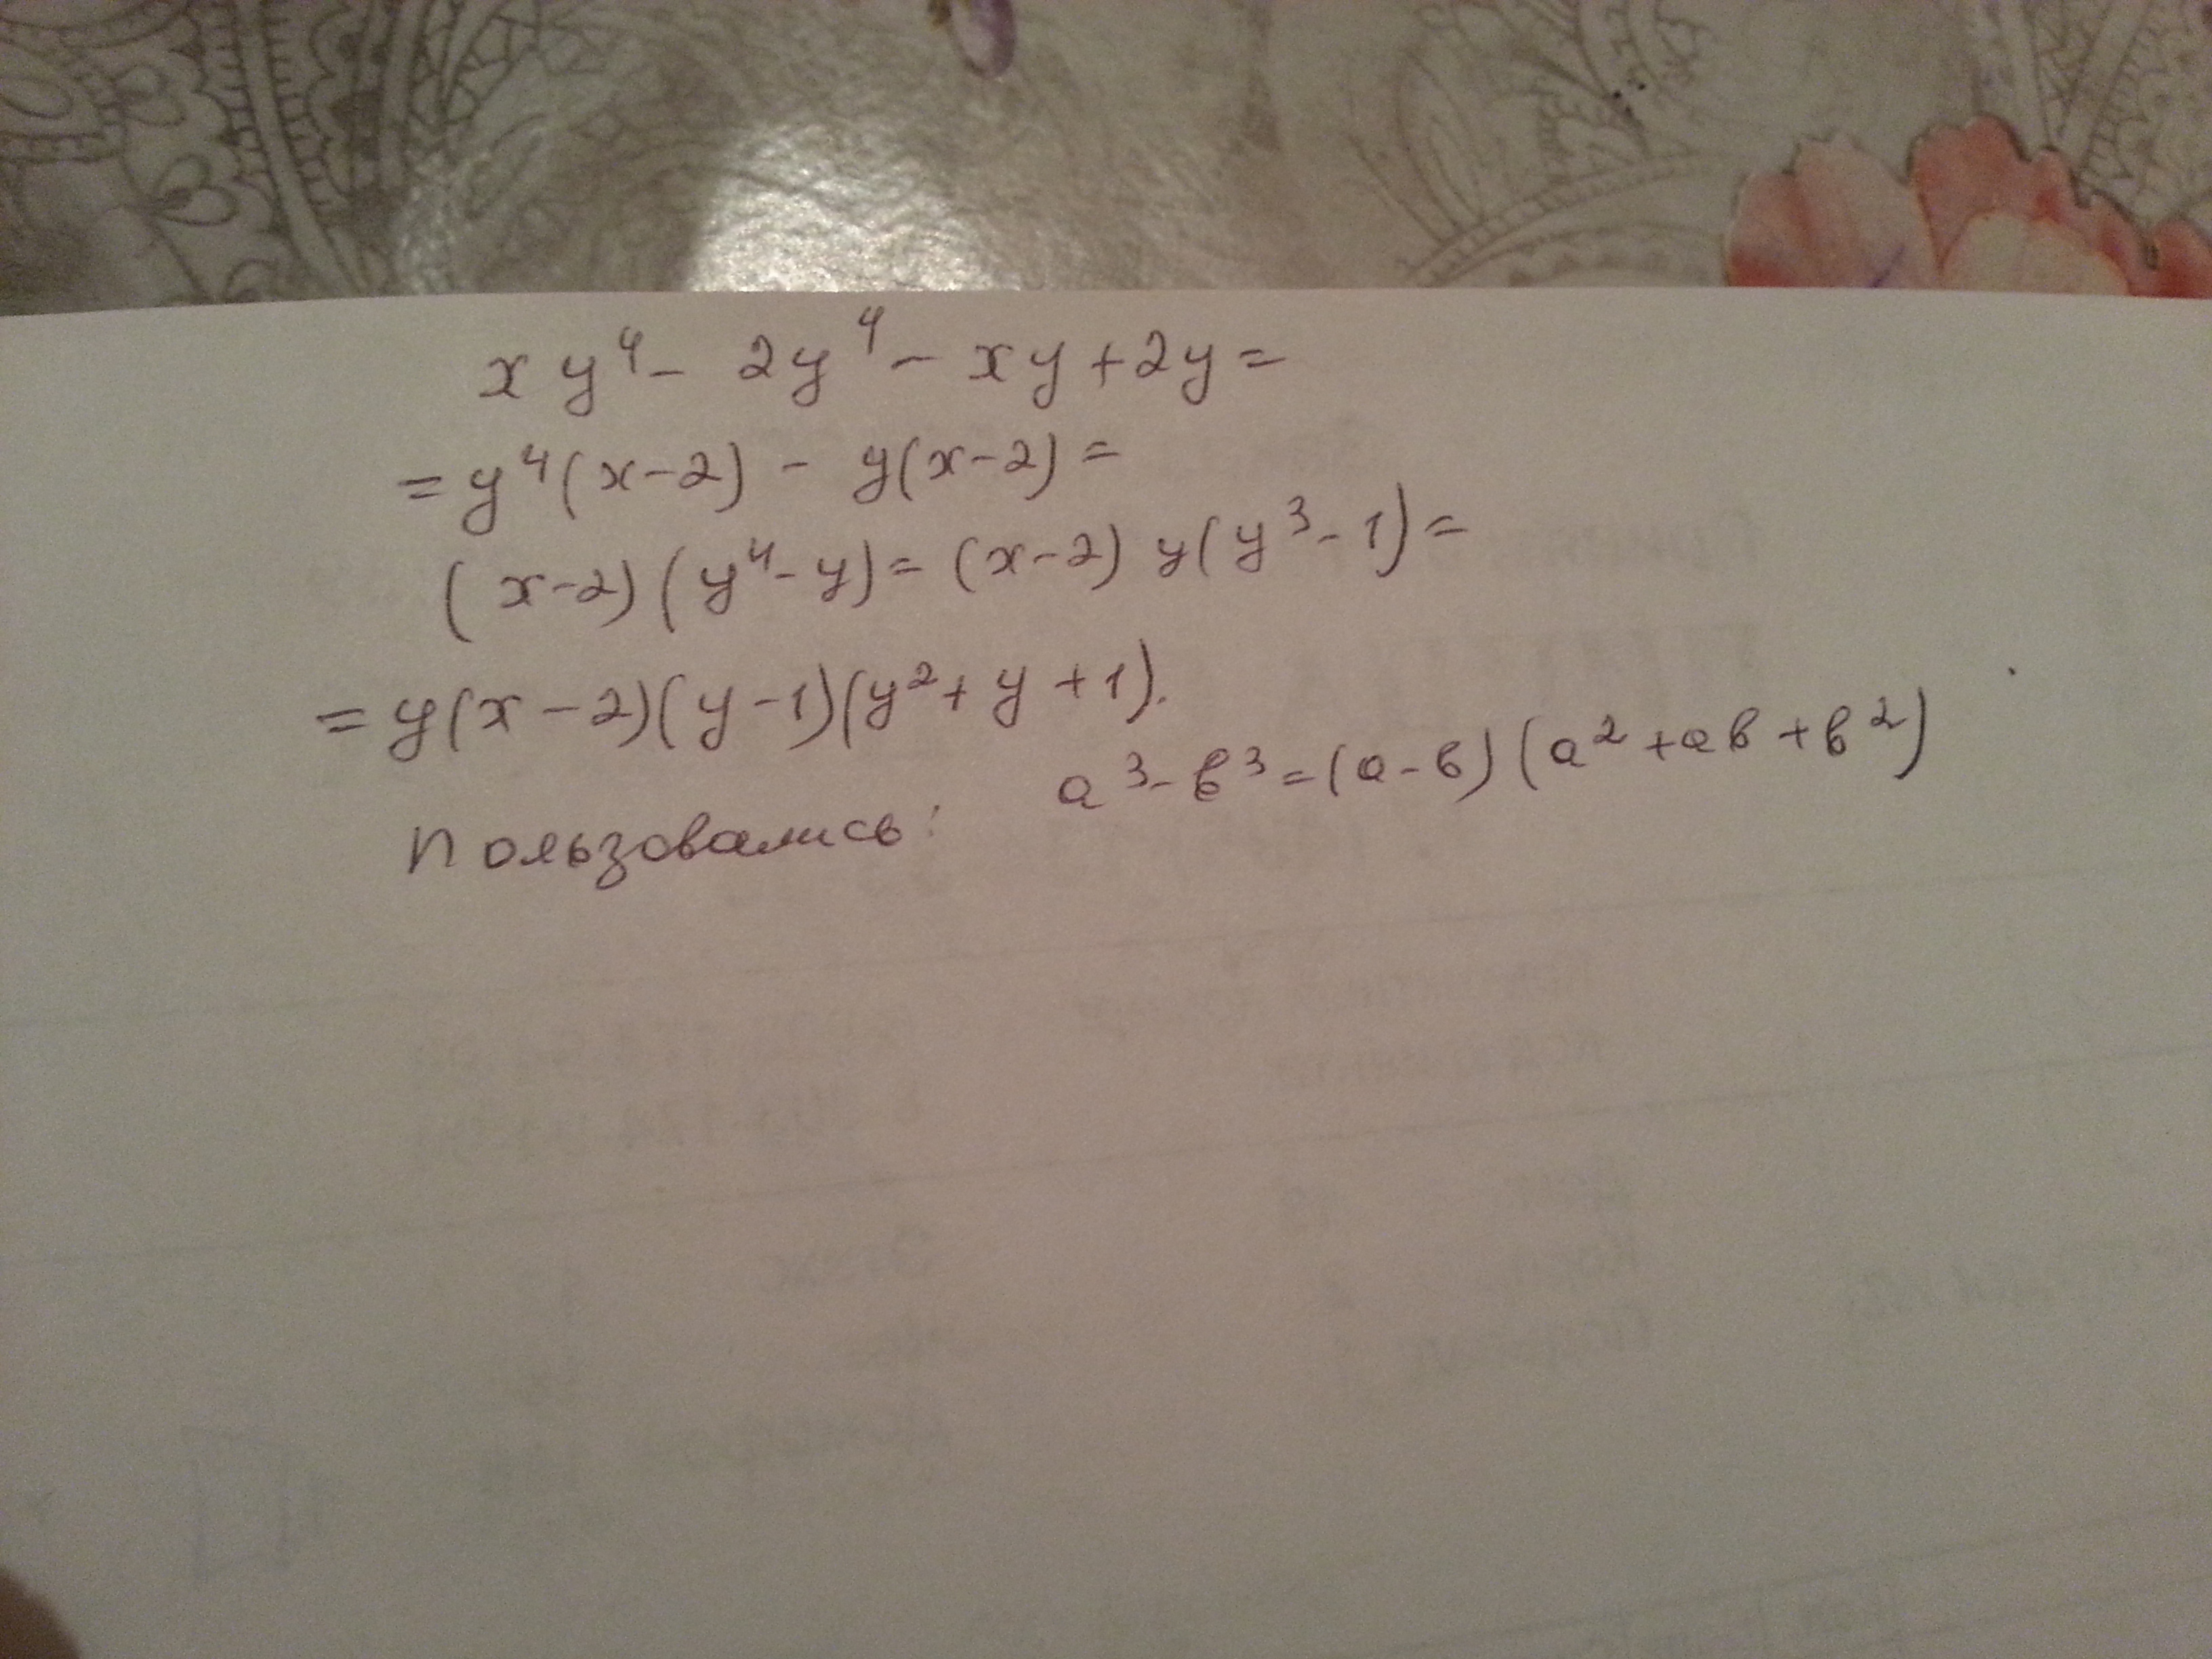 xy⁴ - 2y⁴ - xy + 2y =
= y⁴(x-2) - y(x-2) =
(x-2)(y⁴-y) = (x-2) y(y³-1) =
= y(x-2)(y-1)(y²+y+1).
Пользовались: a³-в³=(a-в)(a²+aв+в²)